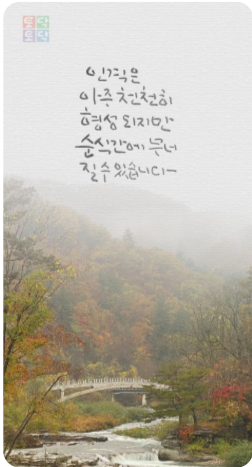 인격은
아주 천천히
형성 되지만
순식간에 무너
질 수 있습니다-